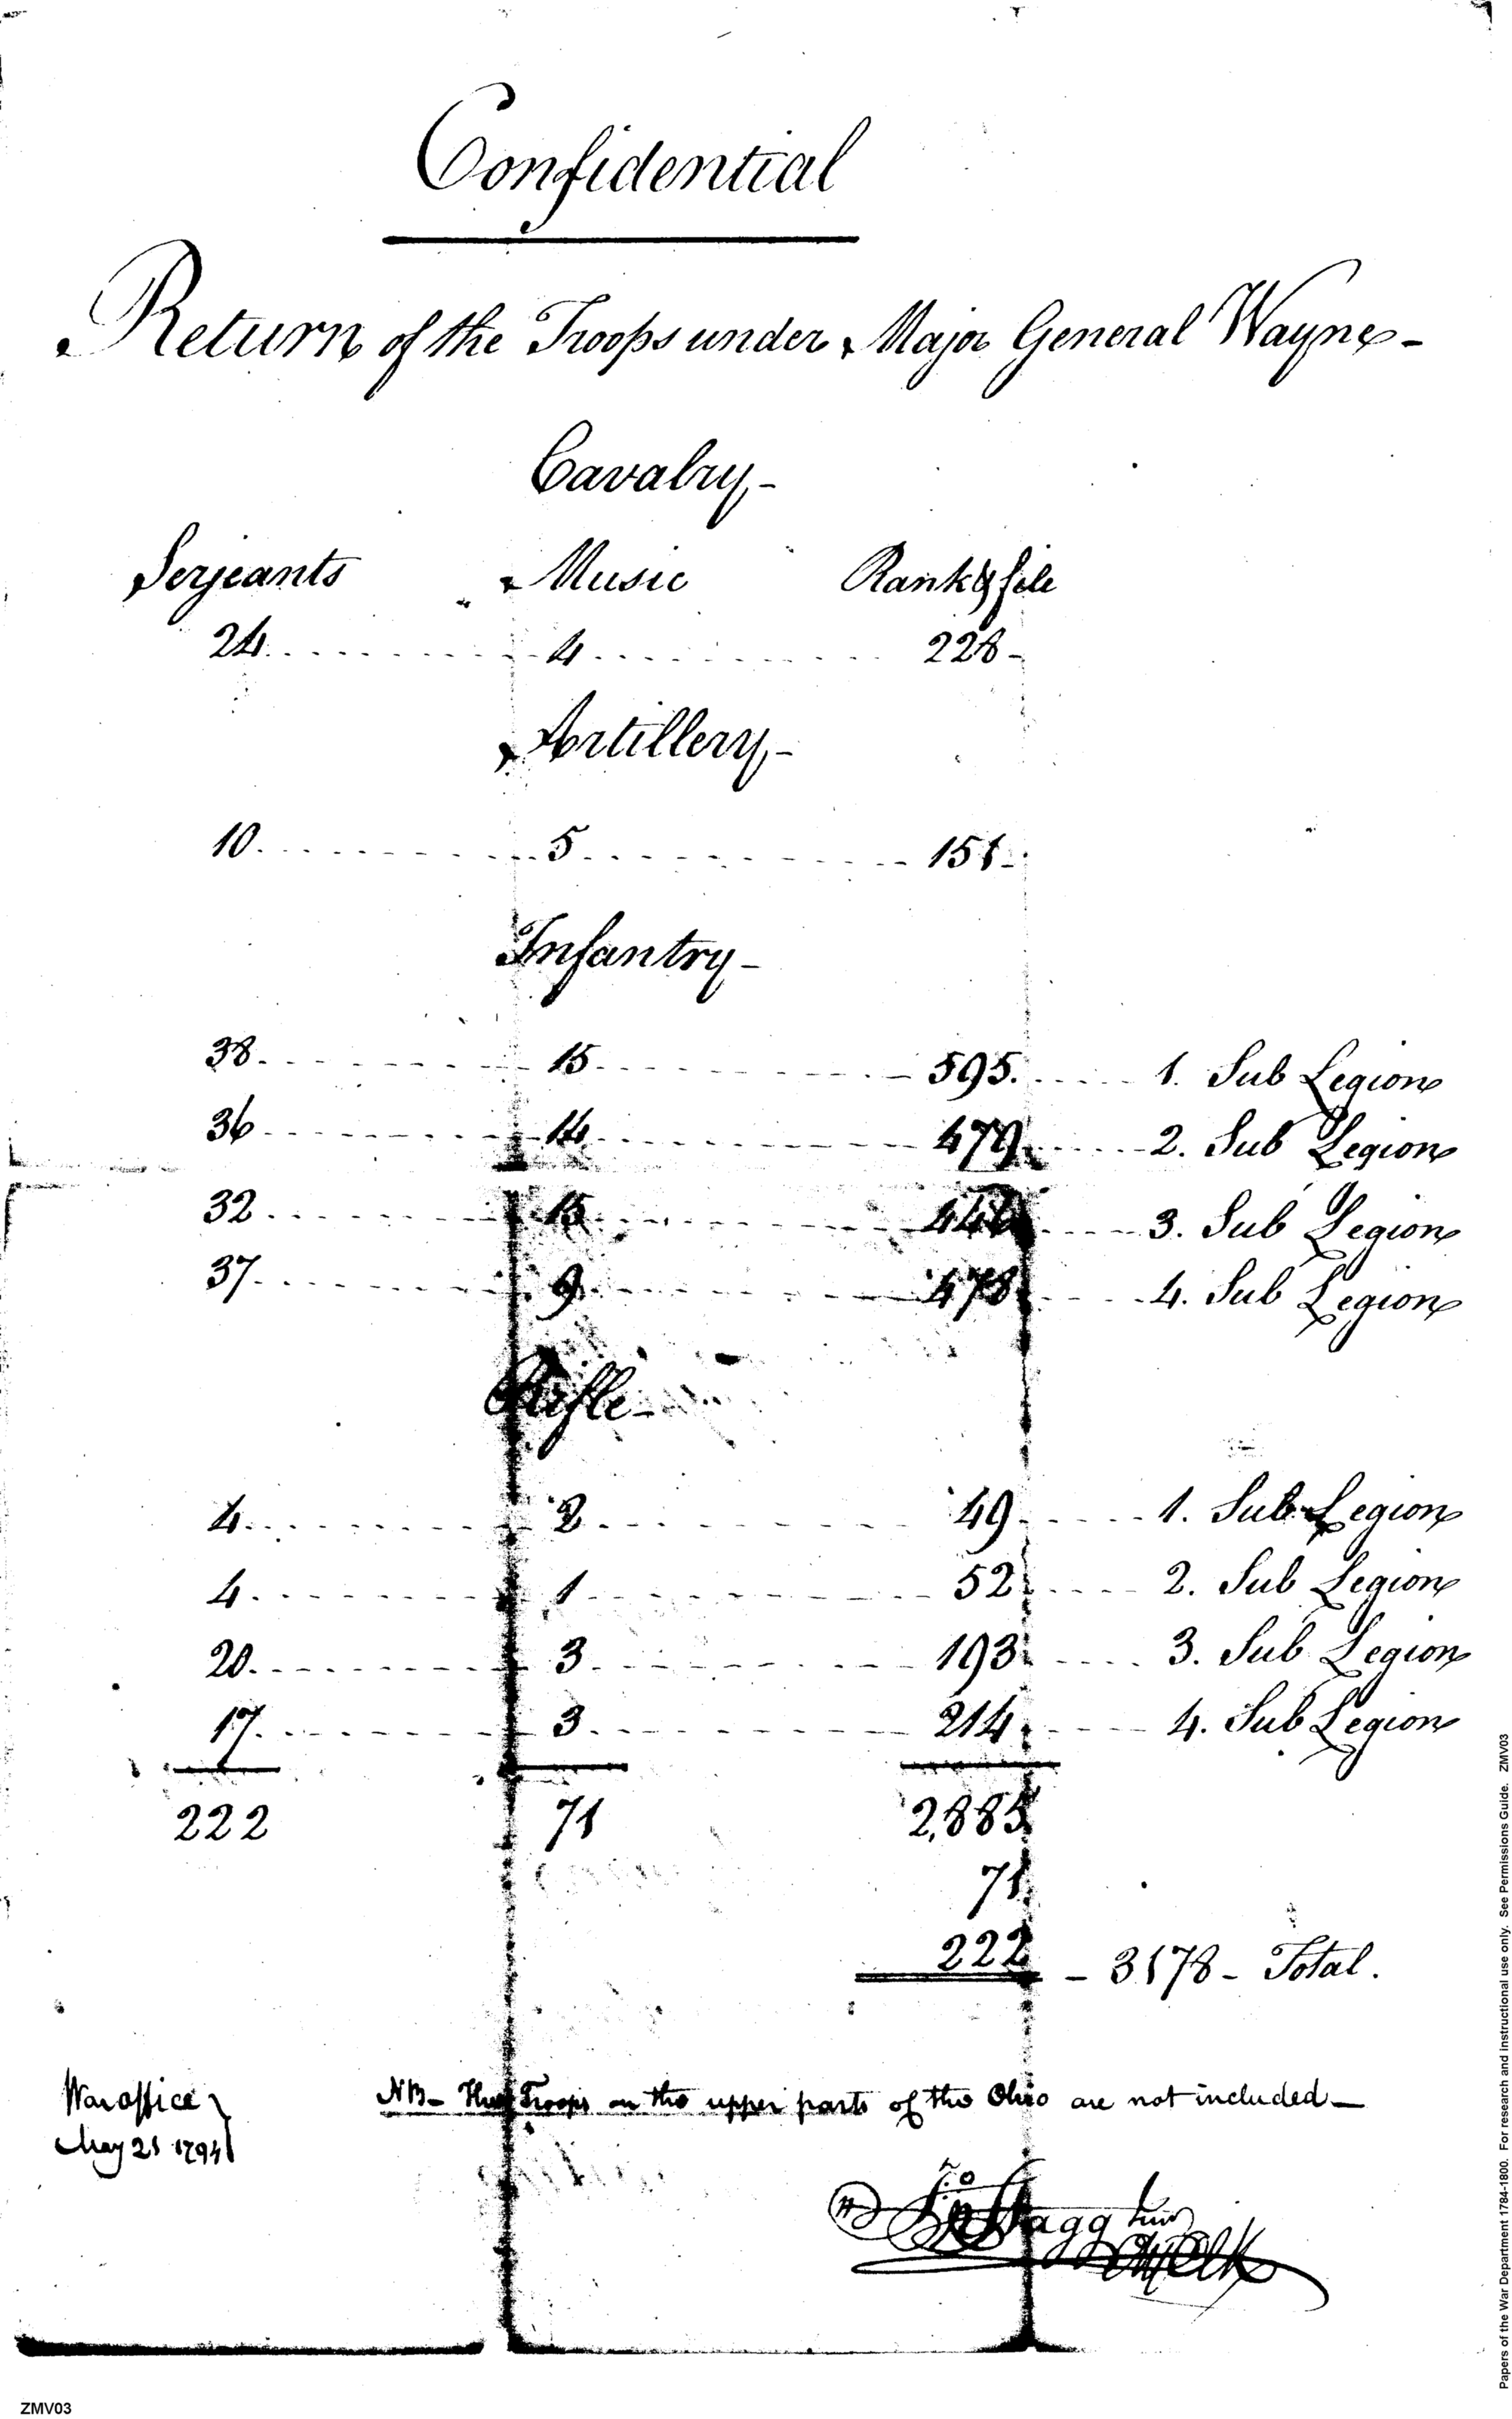 Confidential
Return of the Troops under Major General Wayne -
Cavalry -
Serjeants Music Rank & file
24 4 228 -
Artillery -
10 5 151 -
Infantry -
38 15 595 1. Sub Legion
36 14 479 2. Sub Legion
32 15 446 3. Sub Legion
37 9 478 4. Sub Legion
Rifle -
4 2 49 1. Sub Legion
4 1 52 2. Sub Legion
20 3 193 3. Sub Legion
17 3 214 4. Sub Legion
222 71 2,885
71
222 - 3178 - Total.
NB - The Troops on the upper parts of the Ohio are not included -
War office
May 21 1794
Jno Stagg Junr
Ch Clk
ZMV03
Papers of the War Department 1784-1800. For research and instructional use only. See Permissions Guide. ZMV03